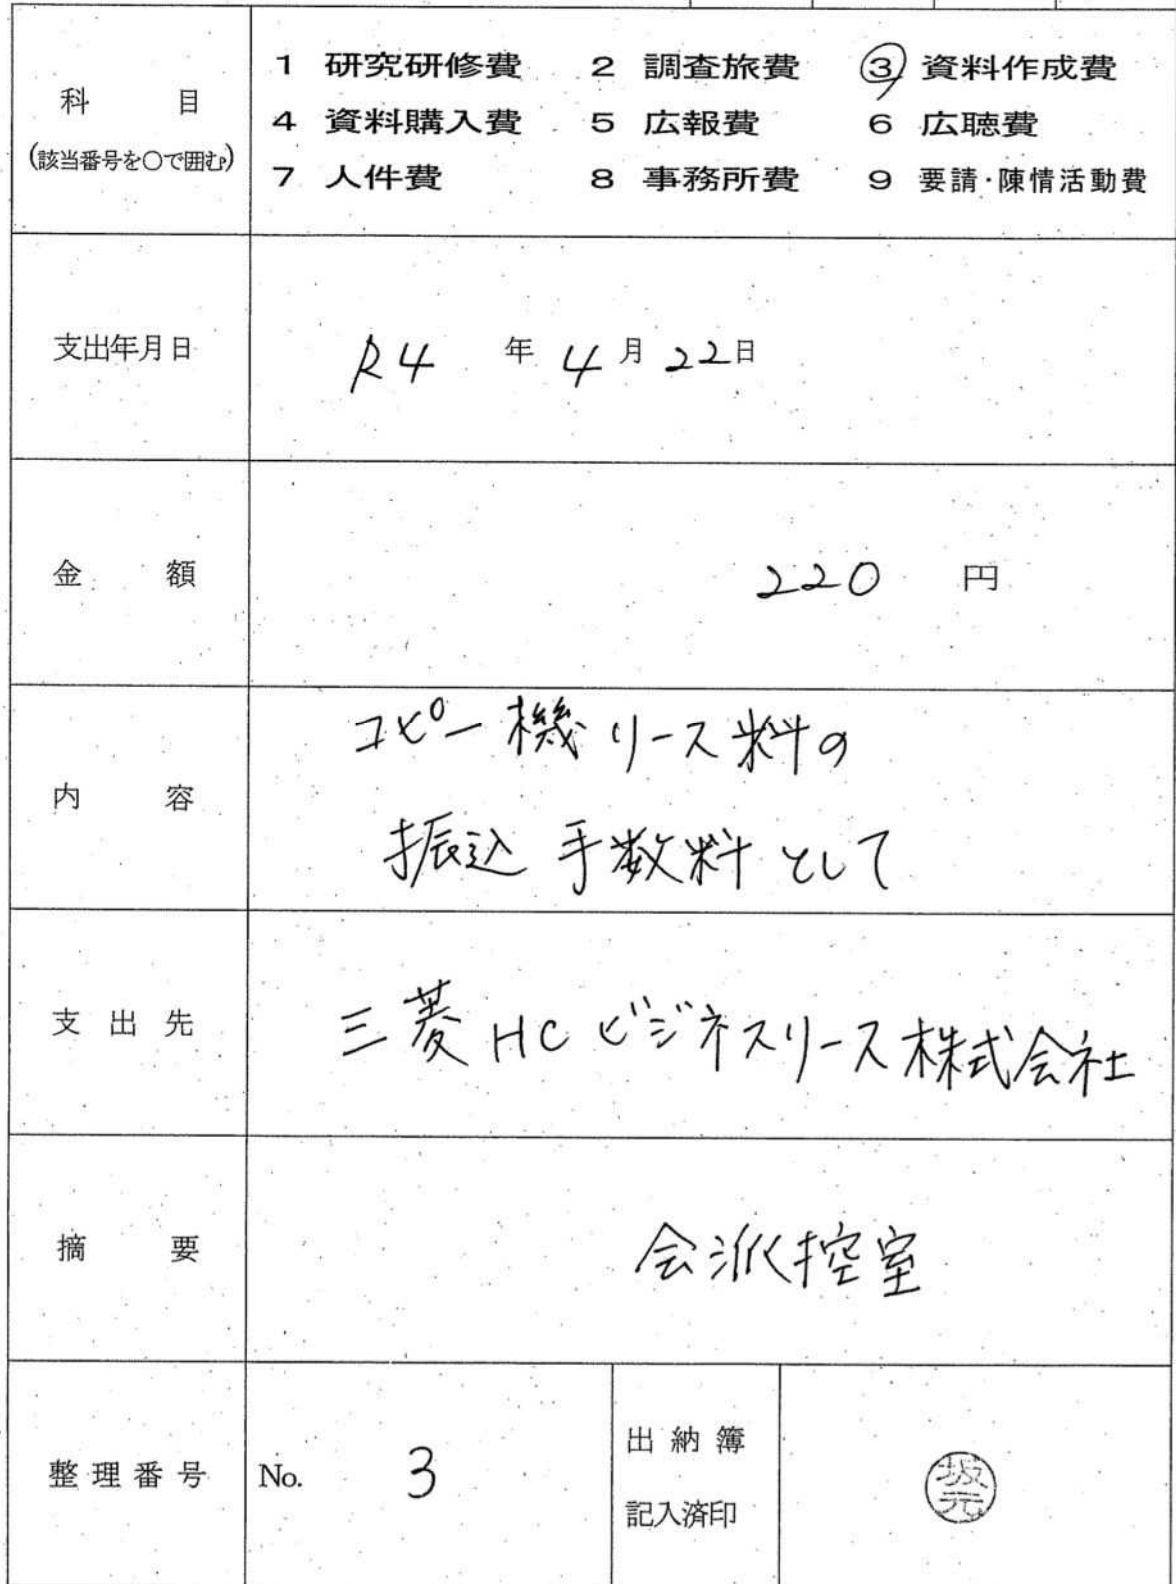 科目
(該当番号を○で囲む)
1 研究研修費 2 調査旅費 ③ 資料作成費
4 資料購入費 5 広報費 6 広聴費
7 人件費 8 事務所費 9 要請・陳情活動費
支出年月日 R4 年 4 月 22日
金額 220 円
内容
コピー機リース料の
振込手数料として
支出先 三菱HCビジネスリース株式会社
摘要 会派控室
整理番号 No. 3
出納簿
記入済印
坂元